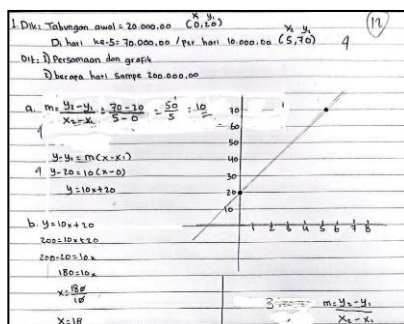 1. Dik: Tabungan awal = 20.000,00 (0,20) x y₁
Di hari ke-5 = 70.000,00 /per hari 10.000,00 (5,70) x₂ y₂
12
9
Dit: 1) Persamaan dan grafik
2) berapa hari sampe 200.000,00
a. m = y₂-y₁ / x₂-x₁ = 70-20 / 5-0 = 50 / 5 = 10
9
y-y₁ = m(x-x₁)
9 y-20 = 10(x-0)
y = 10x+20
b. y = 10x+20
200 = 10x+20
200-20 = 10x
180 = 10x
x = 180 / 10
x = 18
70
60
50
40
30
20
10
1 2 3 4 5 6 7 8
m = y₂-y₁ / x₂-x₁